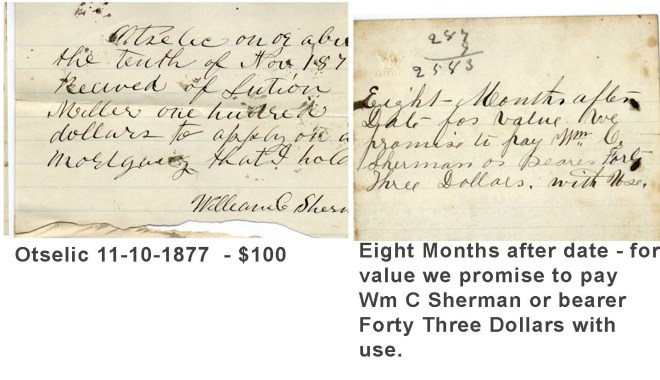 Otselic on or abou
the tenth of Nov 187
Received of Lution
Miller one hundred
dollars to apply on a
Mortgaug that I hold
William C Sherm
287
9
2583
Eight Months after
Date for value we
promise to pay Wm C.
Sherman or bearer Forty
Three Dollars. with Use.
Otselic 11-10-1877 - $100
Eight Months after date - for
value we promise to pay
Wm C Sherman or bearer
Forty Three Dollars with
use.